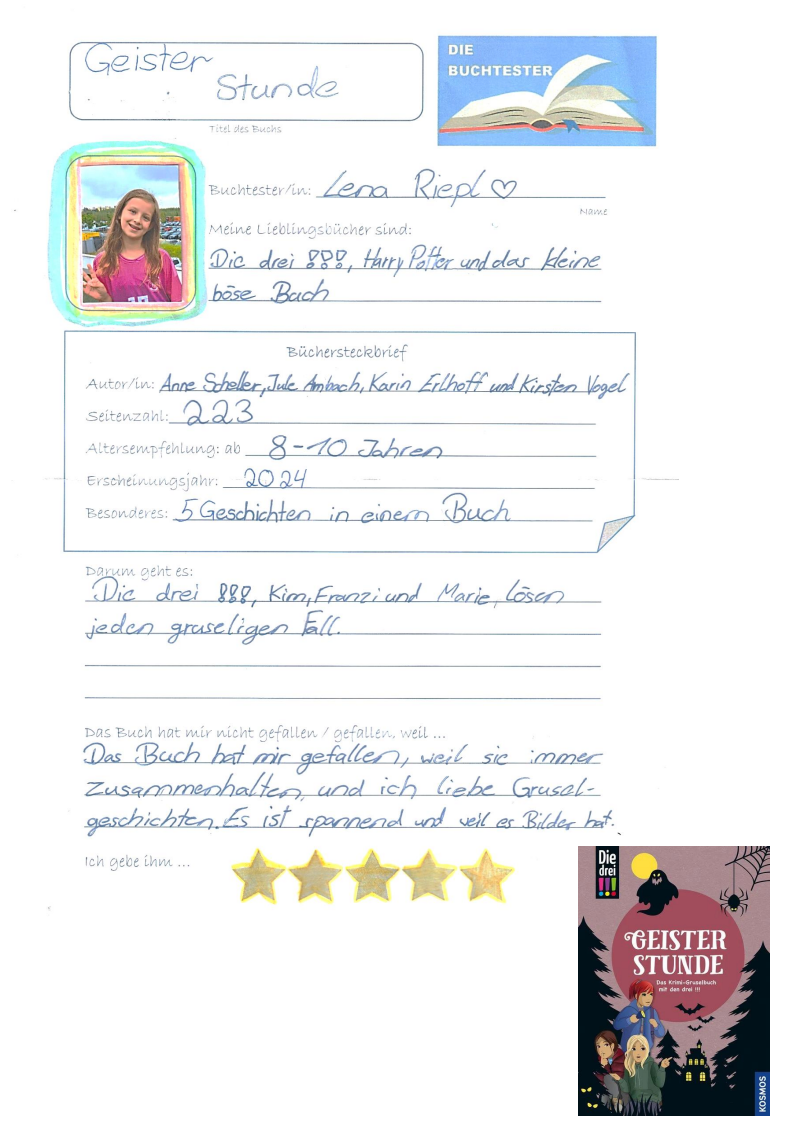 Geister
Stunde
Titel des Buchs
DIE
BUCHTESTER
Buchtester/in: Lena Riepl ♡
Name
Meine Lieblingsbücher sind:
Die drei !!!, Harry Potter und das kleine
böse Buch
Büchersteckbrief
Autor/in: Anne Scheller, Jule Ambach, Karin Erlhoff und Kirsten Vogel
Seitenzahl: 223
Altersempfehlung: ab 8-10 Jahren
Erscheinungsjahr: 2024
Besonderes: 5 Geschichten in einem Buch
Darum geht es:
Die drei !!!, Kim, Franzi und Marie, lösen
jeden gruseligen Fall.
Das Buch hat mir nicht gefallen / gefallen, weil ...
Das Buch hat mir gefallen, weil sie immer
zusammenhalten, und ich liebe Grusel-
geschichten. Es ist spannend und weil es Bilder hat.
Ich gebe ihm ...
Die
drei
!!!
GEISTER
STUNDE
Das Krimi-Gruselbuch
mit den drei !!!
KOSMOS